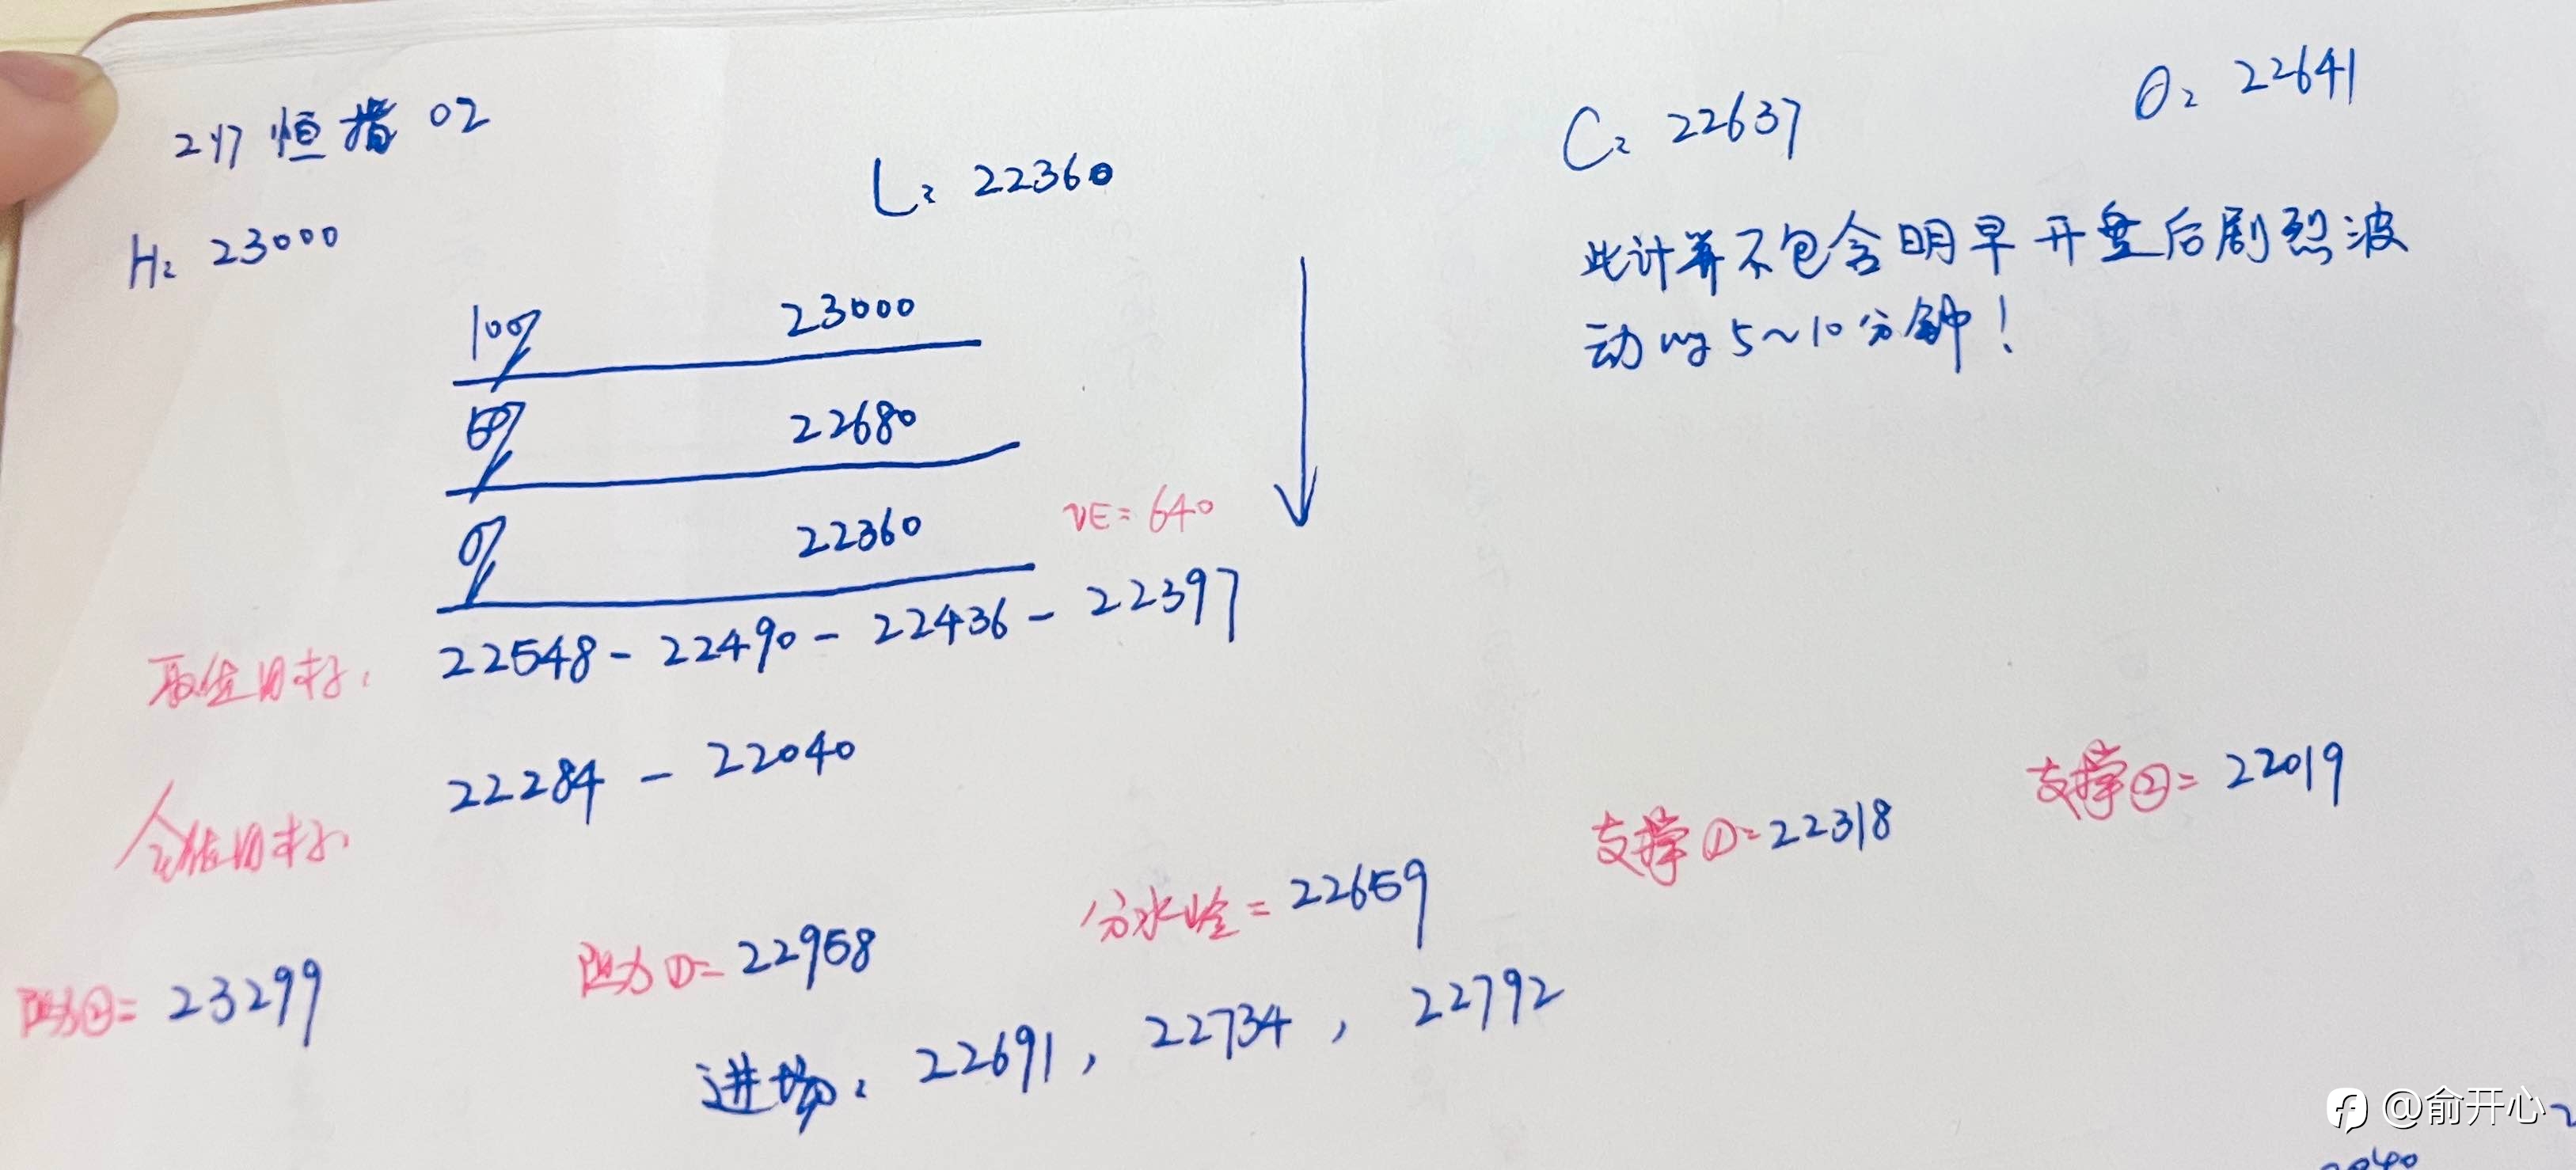 2/7 恒指 02
H: 23000
L: 22360
C: 22637
O: 22641
此计算不包含明早开盘后剧烈波
动的5~10分钟!
100% 23000
50% 22680
0% 22360
VE=640
22548-22490-22436-22397
22284-22040
阻力②=23299
阻力①=22958
分水岭=22659
支撑①=22318
支撑②=22019
进场: 22691, 22734, 22792
@俞开心